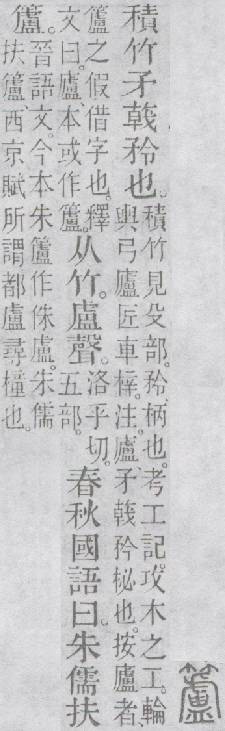 籚
積竹矛戟矜也。
積竹見殳部。矜、柄也。考工記。攻木之工。輪
輿弓廬匠車梓。注。廬、矛戟矜柲也。按廬者、
籚之假借字也。釋
文曰。廬、本或作籚。
从竹。盧聲。
洛乎切。
五部。
春秋國語曰。朱儒扶
籚。
晉語文。今本朱籚作侏盧。朱儒
扶籚、西京賦所謂都盧尋橦也。